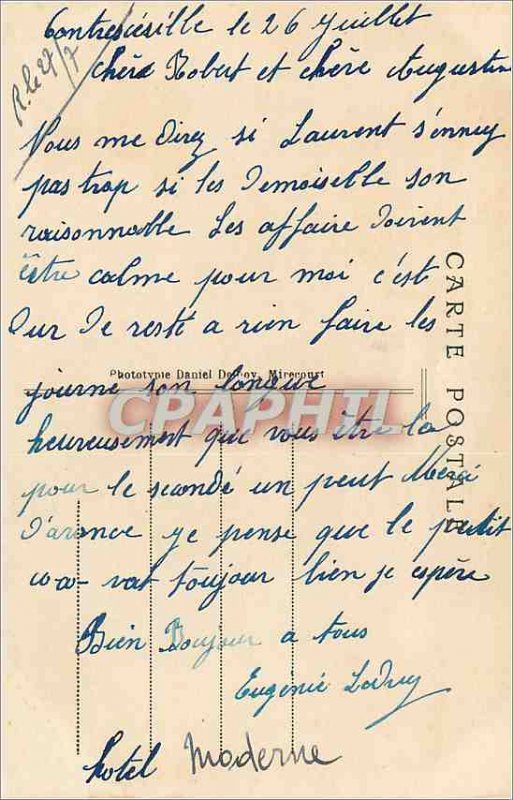 Contrexéville le 26 Juillet
R. le 27/7
chère Robert et chère Augustine
Vous me direz si Laurent s'ennuy
pas trop si les Demoiselle son
raisonnable Les affaire doivent
être calme pour moi c'est
Dur De resté a rien faire les
CARTE POSTALE
Phototypie Daniel Delboy, Mirecourt
journé son longue
CPAPHIL
heureusement que vous être la
pour le secondé un peut Merci
D'avance je pense que le petit
co-co- vat toujour bien je espère
Bien Bonjour a tous
Eugenie Ledruy
hotel Moderne